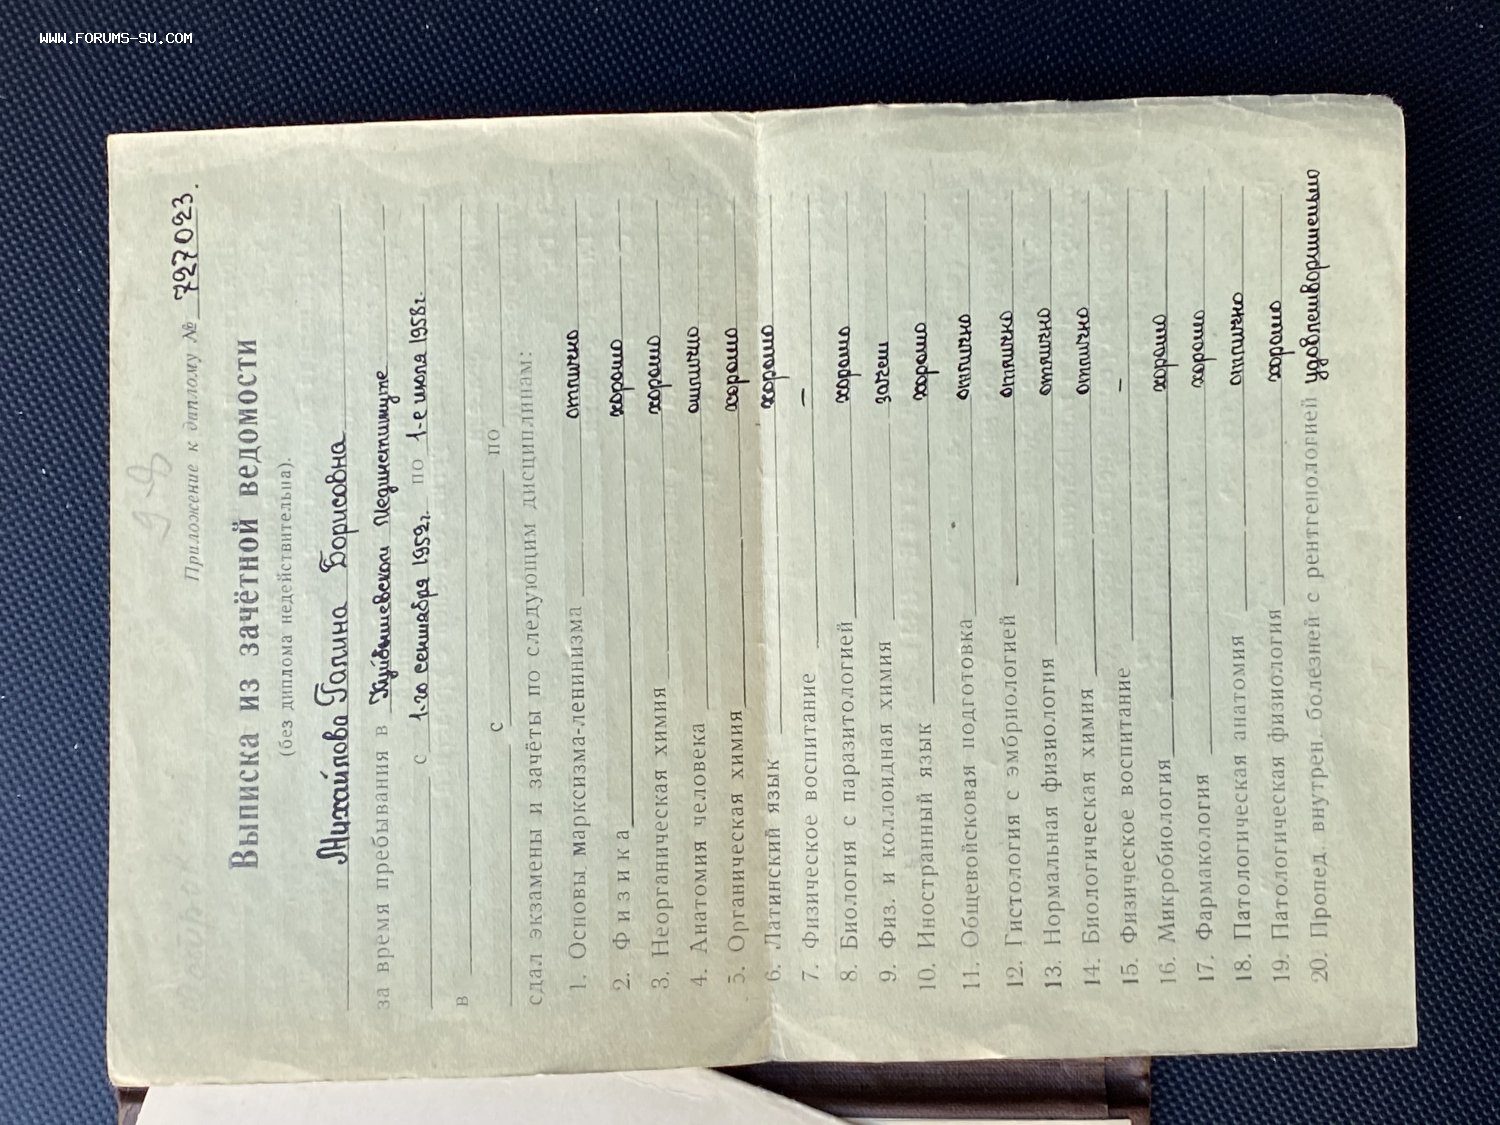 WWW.FORUMS-SU.COM
Приложение к диплому № 727023.
Выписка из зачётной ведомости
(без диплома недействительна).
Михайлова Галина Борисовна
за время пребывания в Куйбышевском Мединституте
с 1-го сентября 1952г. по 1-е июля 1958г.
в
с по
сдал экзамены и зачёты по следующим дисциплинам:
1. Основы марксизма-ленинизма отлично
2. Физика хорошо
3. Неорганическая химия хорошо
4. Анатомия человека отлично
5. Органическая химия хорошо
6. Латинский язык хорошо
7. Физическое воспитание –
8. Биология с паразитологией хорошо
9. Физ. и коллоидная химия зачет
10. Иностранный язык хорошо
11. Общевойсковая подготовка отлично
12. Гистология с эмбриологией отлично
13. Нормальная физиология отлично
14. Биологическая химия отлично
15. Физическое воспитание –
16. Микробиология хорошо
17. Фармакология хорошо
18. Патологическая анатомия отлично
19. Патологическая физиология хорошо
20. Пропед. внутрен. болезней с рентгенологией удовлетворительно